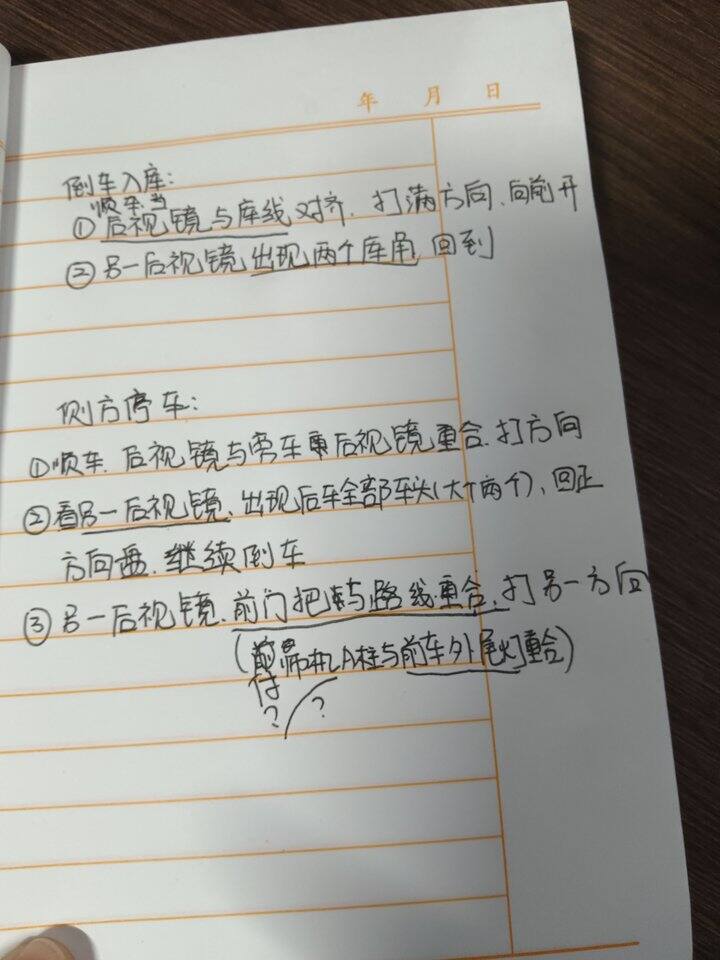 年 月 日
倒车入库:
顺车,当
①后视镜与库线对齐,打满方向,向前开
②另一后视镜出现两个库角,回到
侧方停车:
①顺车,后视镜与旁车后视镜重合,打方向
②看另一后视镜,出现后车全部车头(大个两个),回正
方向盘,继续倒车
③另一后视镜,前门把与路线重合,打另一方向
(A柱与前车外尾灯重合)
? ?